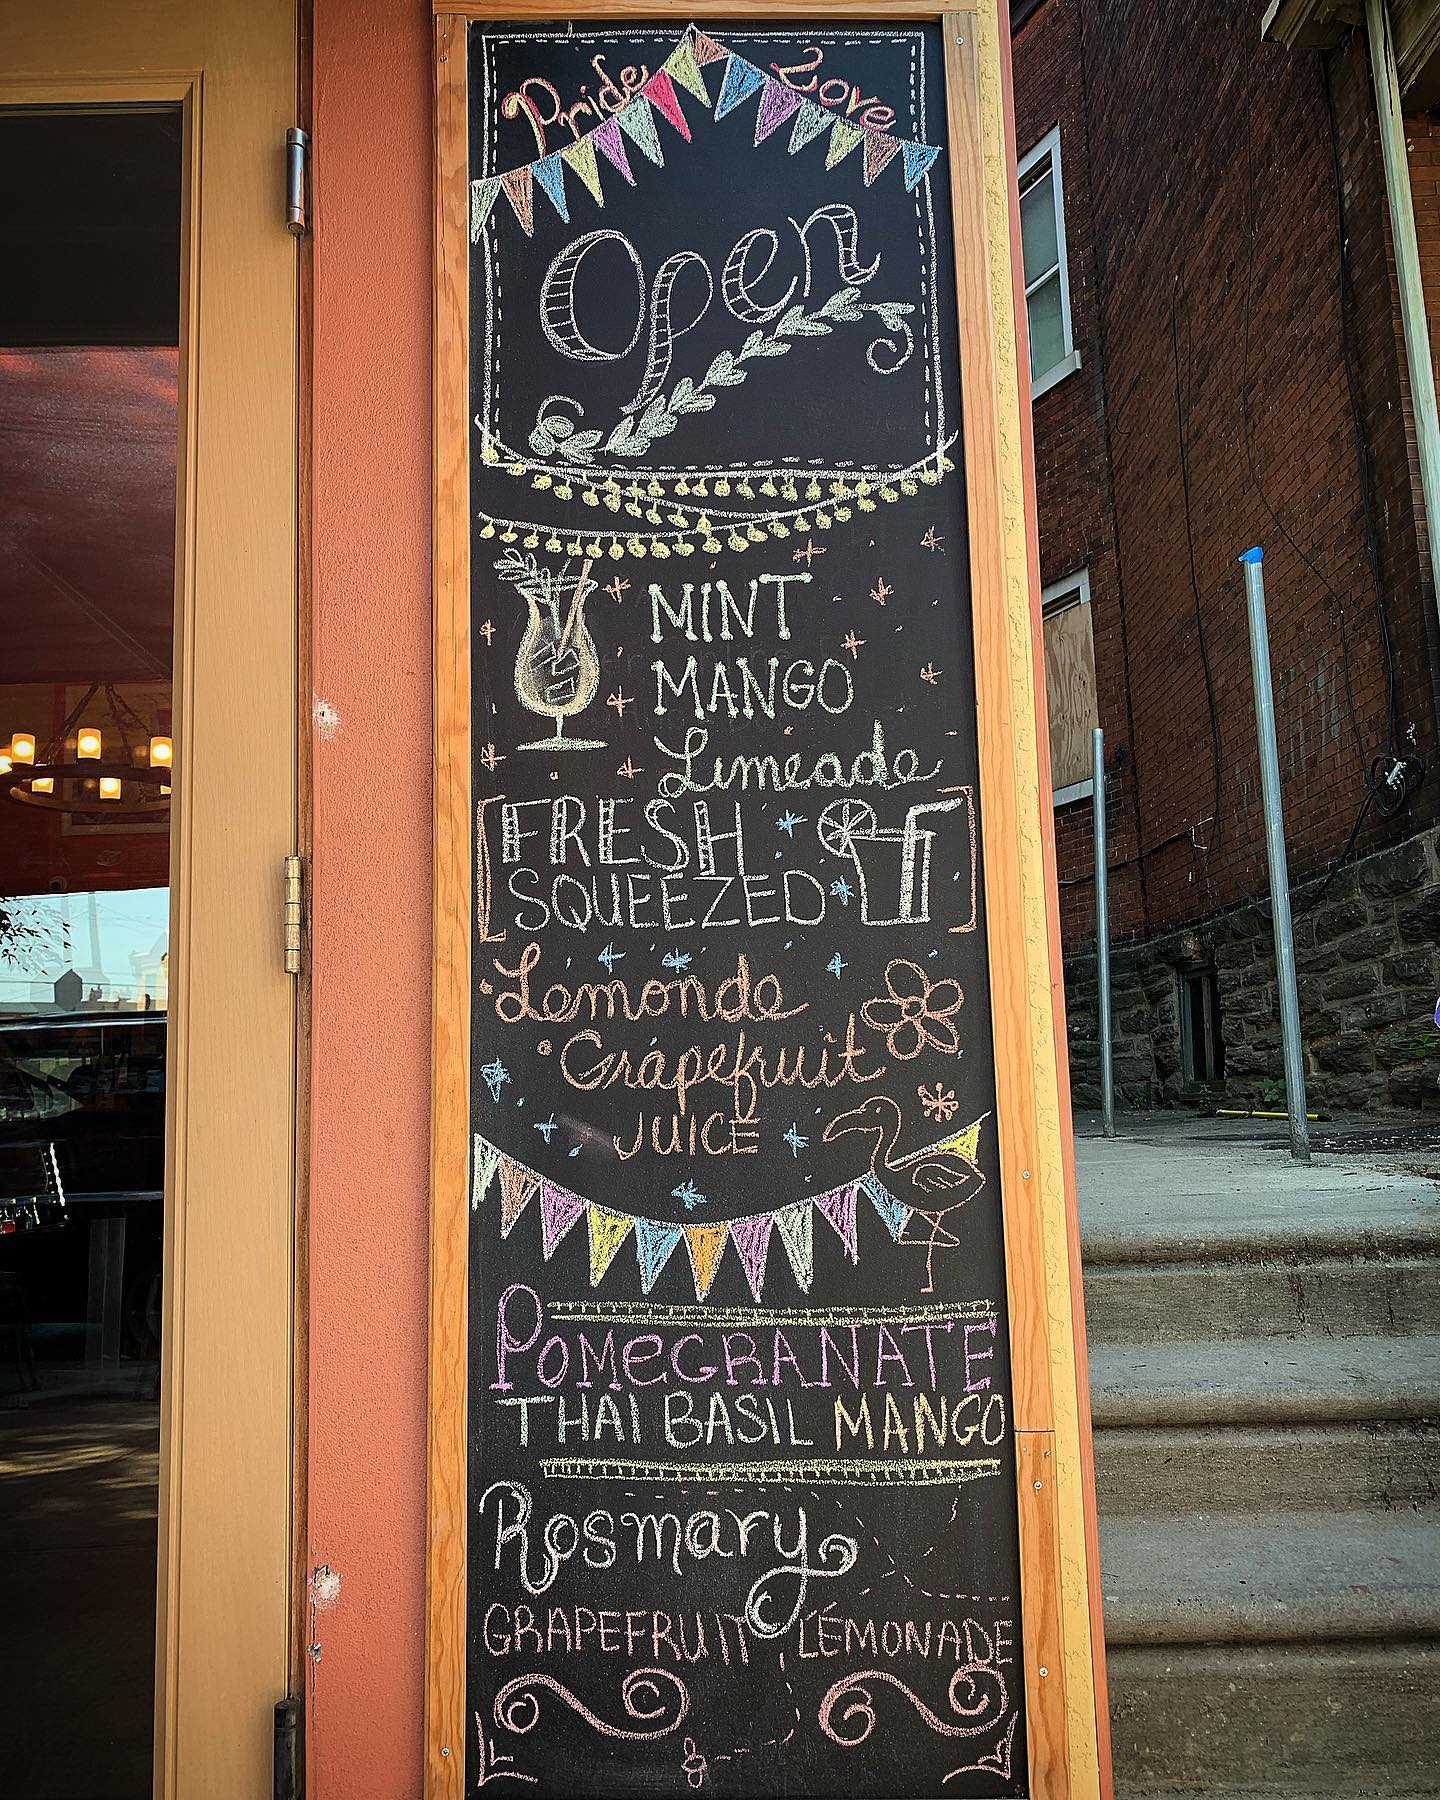 Pride Love
Open
MINT
MANGO
Limeade
FRESH
SQUEEZED
Lemonde
Grapefruit
JUICE
POMeGRANATE
THAI BASIL MANGO
Rosmary
GRAPEFRUIT, LEMONADE